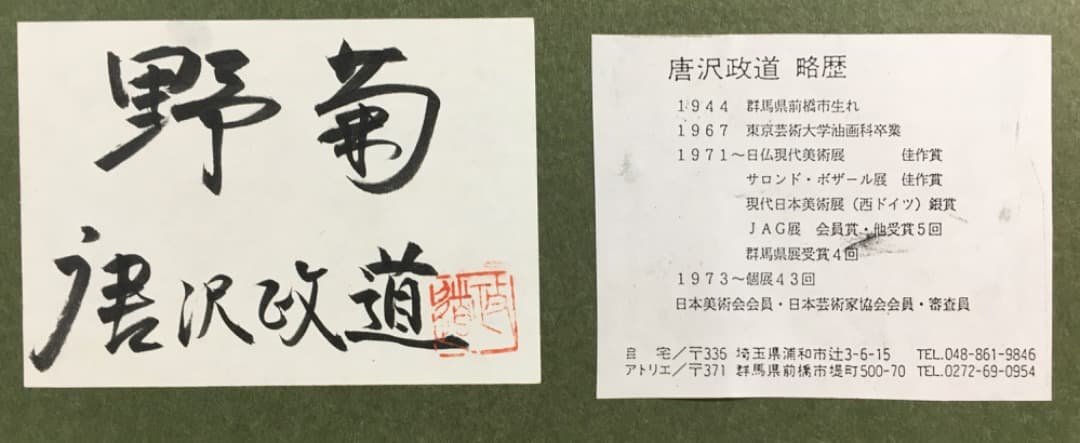 野菊
唐沢政道
政道
唐沢政道 略歴
1944 群馬県前橋市生れ
1967 東京芸術大学油画科卒業
1971～日仏現代美術展 佳作賞
サロンド・ボザール展 佳作賞
現代日本美術展（西ドイツ）銀賞
JAG展 会員賞・他受賞5回
群馬県展受賞4回
1973～個展43回
日本美術会会員・日本芸術家協会会員・審査員
自 宅／〒336 埼玉県浦和市辻3-6-15 TEL.048-861-9846
アトリエ／〒371 群馬県前橋市堤町500-70 TEL.0272-69-0954